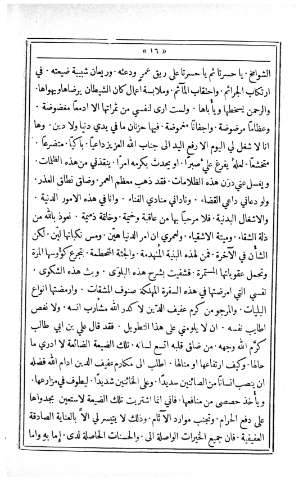 « ١٦ »
الشوامخ . يا حسرتا ثم يا حسرتا على ريق عمر ودعته . وريعان شبيبة ضيعته . في
ارتكاب الجرائم . واحتقاب المآثم . وملابسة اعمال كان الشيطان يرضاها ويهواها .
والرحمن يسخطها ويأباها . ولست ارى لنفسي من ثمراتها الا ادمعًا مفضوضة .
وعظامًا مرضوضة . واجفانًا مغموضة . فيها حزنان ما في يدي دنيا ولا دين . وها
انا لا شغل لي اليوم الا رفع اليد الى جناب الله العزيز داعيًا . باكيًا . متضرعًا .
متخشعًا . لعله يفرغ علي صبرًا . او يحدث بكرمه امرًا . ينقذني من هذه الظلمات .
ويغسل عني درن هذه الظلامات . فقد ذهب معظم العمر . وضاق نطاق العذر .
ولو دعاني داعي القضاء . وناداني منادي الفناء . وانا في هذه الامور الدنية .
والاشغال البدنية . فلا مرحبا بها من عاقبة وخيمة . وخاتمة ذميمة . نعوذ بالله من
ذلة الشقاء . وميتة الاشقياء . ولعمري ان امر الدنيا هين . ومس نكباتها لين . لكن
الشأن في الآخرة . فمن لهذه البنية المنهدمة . والجثة المحطمة . بتجرع كؤوسها المرة
وتحمل عقوباتها المستمرة . فشفيت بشرح هذه البلوى . وبث هذه الشكوى .
نفسي التي امرضتها في هذه السفرة المهلكة صنوف المشقات . وارمضتها انواع
البليات . والمرجو من كرم عفيف الدين لا كدر الله مشارب انسه . ولا نغص
اطايب نفسه . ان لا يلومني على هذا التطويل . فقد قال علي بن ابي طالب
كرم الله وجهه . من ضاق قلبه اتسع لسانه . تلك الضيعة الضائعة لا ادري ما
حالها . وكيف ارتفاعها او منالها . اطلب الى مكارم عفيف الدين ادام الله فضله
ان ينصب انسانًا من الصائنين سديدًا . وعلى الخائنين شديدًا . ليطوف في مزارعها .
ويأخذ حصصي من منافعها . فاني انما اشتريت تلك الضيعة لاستعين بجدواها
على دفع الحرام . وتجنب موارد الآثام . وذلك لا يتيسر لي الا بالعناية الصادقة
العفيفية . فان جميع الخيرات الواصلة الي . والحسنات الحاصلة لدي . انما به واما